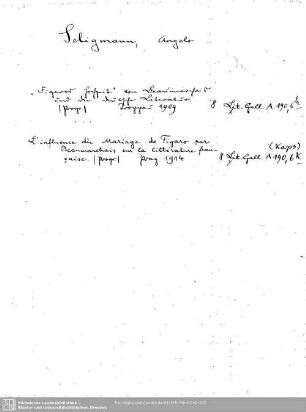 Seligmann, Angelo
"Figaros Hochzeit" von Beaumarchais
und die deutsche Literatur
|Progr| Troppau 1909 8 Lit. Gall. A 190, 6 h
L'influence du Mariage de Figaro par
(Kaps)
Beaumarchais sur la littérature fran-
çaise. |Progr| Prag 1914 8 Lit. Gall. A 190, 6 k
Sächsische Landesbibliothek -
Staats- und Universitätsbibliothek Dresden